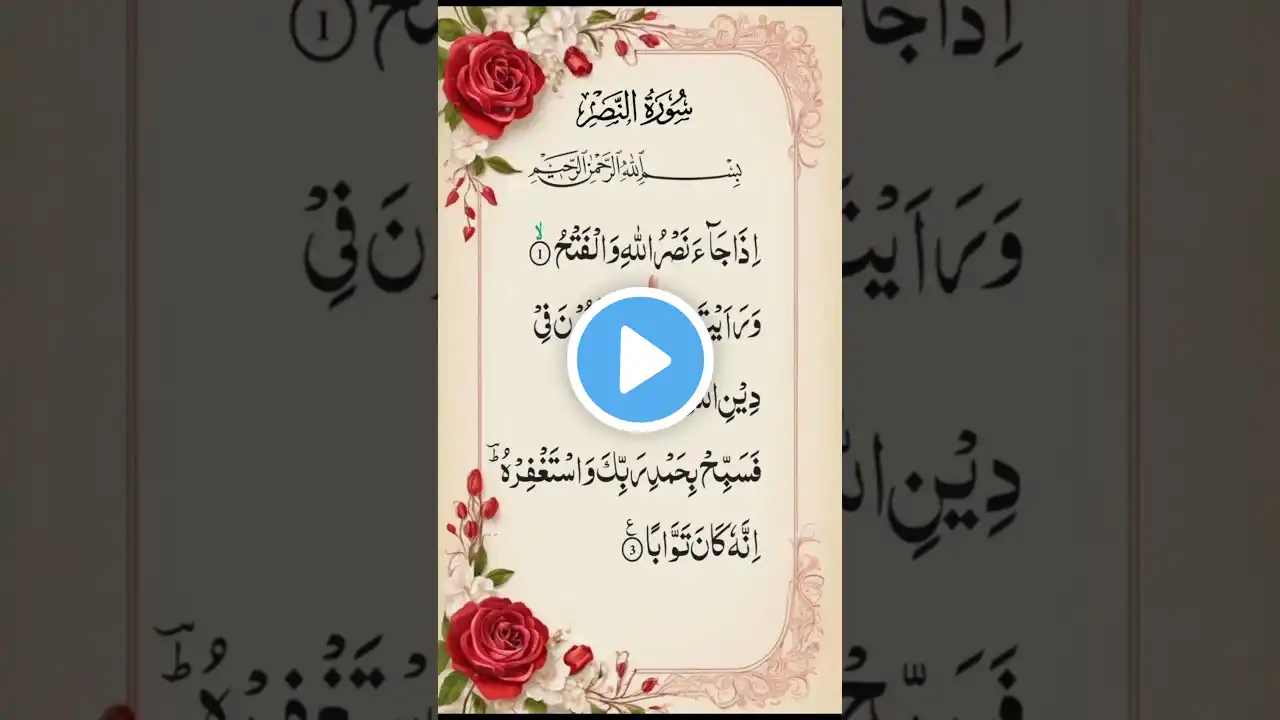 سُوْرَةُ النَّصْرِ
بِسْمِ اللهِ الرَّحْمٰنِ الرَّحِيْمِ
اِذَا جَآءَ نَصْرُ اللهِ وَالْفَتْحُ ۙ 1
وَرَاَيْتَ فِيْ
دِيْنِ
فَسَبِّحْ بِحَمْدِ رَبِّكَ وَاسْتَغْفِرْهُ ؕ
اِنَّهٗ كَانَ تَوَّابًا ع 3